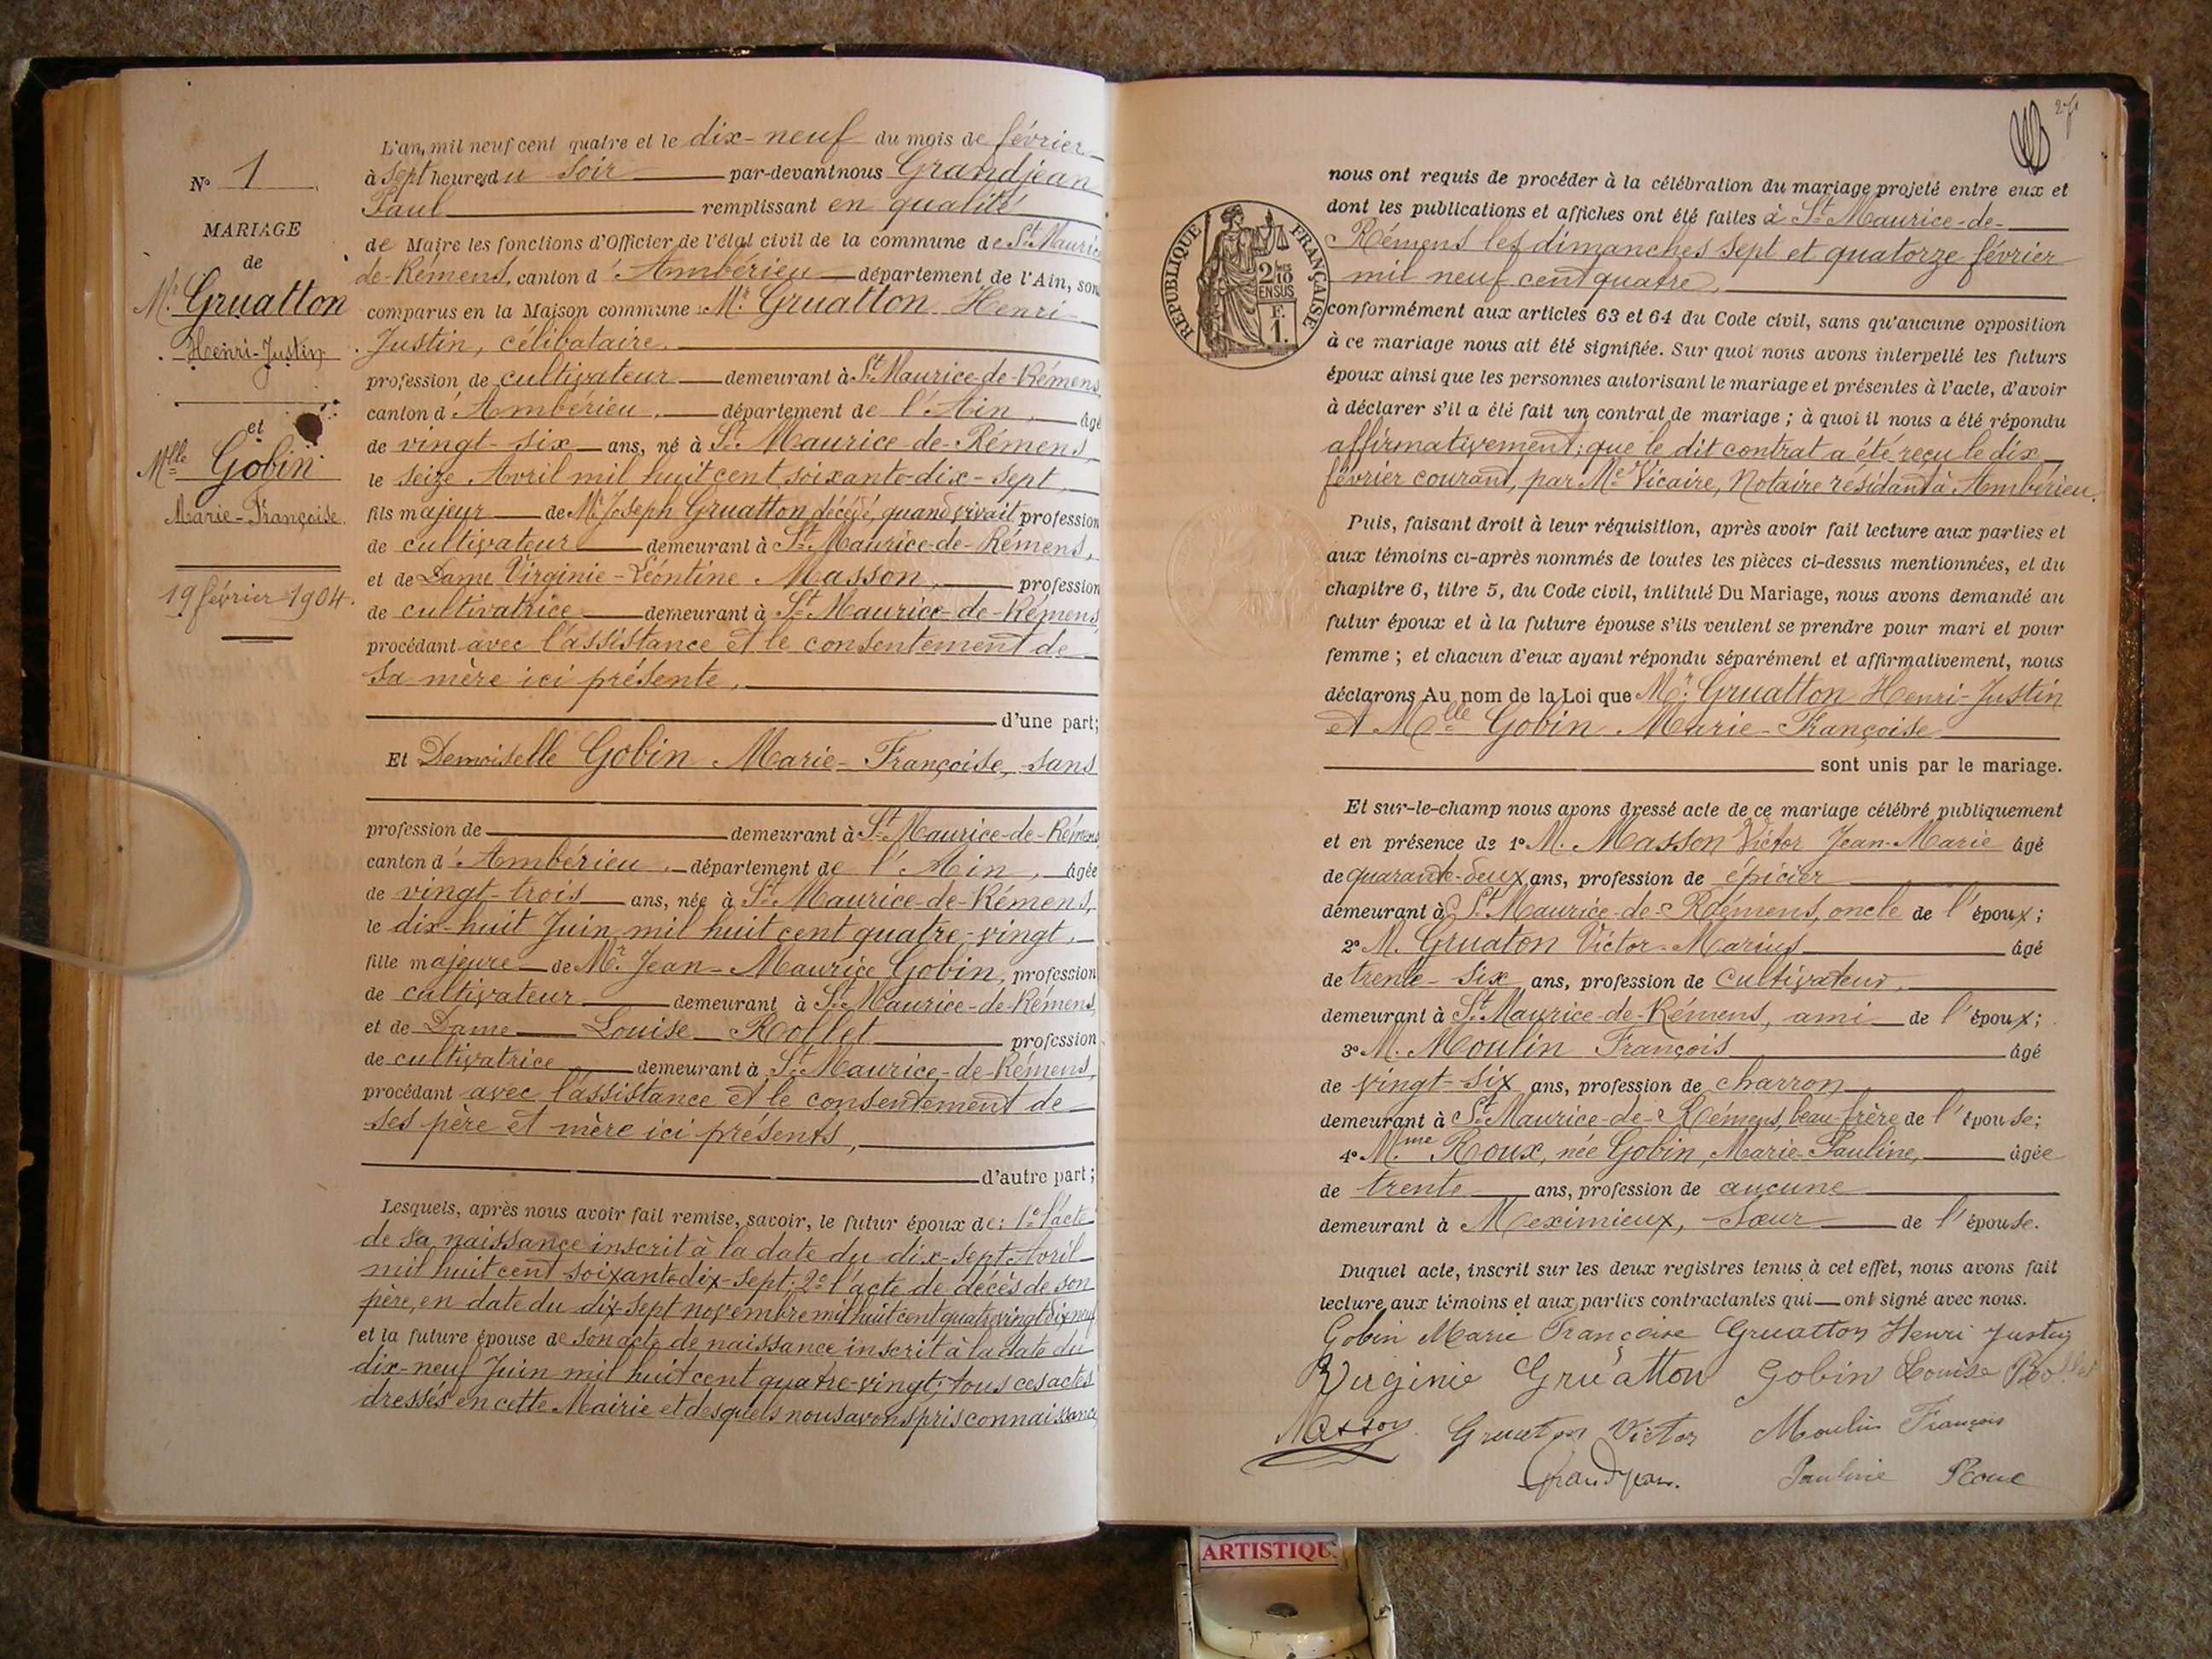 N° 1
MARIAGE
de
Mr Gruatton
Henri-Justin
et
Mlle Gobin
Marie-Françoise.
19 février 1904.
L'an, mil neuf cent quatre et le dix-neuf du mois de février
à sept heures du soir par-devant nous Grandjean
Paul remplissant en qualité
de Maire les fonctions d'Officier de l'état civil de la commune de St Maurice
de-Rémens, canton d'Ambérieu département de l'Ain, sont
comparus en la Maison commune : Mr Gruatton Henri-
Justin, célibataire,
profession de cultivateur demeurant à St Maurice-de-Rémens,
canton d'Ambérieu, département de l'Ain, âgé
de vingt-six ans, né à St Maurice-de-Rémens,
le seize Avril mil huit cent soixante-dix-sept,
fils majeur de Mr Joseph Gruatton, décédé, quand vivait profession
de cultivateur demeurant à St Maurice-de-Rémens,
et de Dame Virginie-Léontine Masson, profession
de cultivatrice demeurant à St Maurice-de-Rémens,
procédant avec l'assistance et le consentement de
sa mère ici présente,
d'une part;
Et Demoiselle Gobin Marie-Françoise, sans
profession de demeurant à St Maurice-de-Rémens
canton d'Ambérieu, département de l'Ain, âgée
de vingt-trois ans, née à St Maurice-de-Rémens,
le dix-huit Juin mil huit cent quatre-vingt,
fille majeure de Mr Jean-Maurice Gobin, profession
de cultivateur demeurant à St Maurice-de-Rémens,
et de Dame Louise Rollet profession
de cultivatrice demeurant à St Maurice-de-Rémens,
procédant avec l'assistance et le consentement de
ses père et mère ici présents,
d'autre part;
Lesquels, après nous avoir fait remise, savoir, le futur époux de : 1° l'acte
de sa naissance inscrit à la date du dix-sept Avril
mil huit cent soixante-dix-sept; 2° l'acte de décès de son
père, en date du dix-sept novembre mil huit cent quatre vingt dix neuf
et la future épouse de son acte de naissance inscrit à la date du
dix-neuf Juin mil huit cent quatre-vingt; tous ces actes
dressés en cette Mairie et desquels nous avons pris connaissance
RÉPUBLIQUE FRANÇAISE
2/10
EN SUS
F.
1.
nous ont requis de procéder à la célébration du mariage projeté entre eux et
dont les publications et affiches ont été faites à St Maurice-de-
Rémens les dimanches sept et quatorze février
mil neuf cent quatre,
conformément aux articles 63 et 64 du Code civil, sans qu'aucune opposition
à ce mariage nous ait été signifiée. Sur quoi nous avons interpellé les futurs
époux ainsi que les personnes autorisant le mariage et présentes à l'acte, d'avoir
à déclarer s'il a été fait un contrat de mariage ; à quoi il nous a été répondu
affirmativement; que le dit contrat a été reçu le dix
février courant, par Me Vicaire, Notaire résidant à Ambérieu.
Puis, faisant droit à leur réquisition, après avoir fait lecture aux parties et
aux témoins ci-après nommés de toutes les pièces ci-dessus mentionnées, et du
chapitre 6, titre 5, du Code civil, intitulé Du Mariage, nous avons demandé au
futur époux et à la future épouse s'ils veulent se prendre pour mari et pour
femme ; et chacun d'eux ayant répondu séparément et affirmativement, nous
déclarons Au nom de la Loi que Mr Gruatton Henri-Justin
et Mlle Gobin Marie-Françoise
sont unis par le mariage.
Et sur-le-champ nous avons dressé acte de ce mariage célébré publiquement
et en présence de 1° M. Masson Victor Jean-Marie âgé
de quarante-deux ans, profession de épicier
demeurant à St Maurice-de-Rémens, oncle de l'époux;
2° M. Gruaton Victor-Marius âgé
de trente-six ans, profession de cultivateur,
demeurant à St Maurice-de-Rémens, ami de l'époux;
3° M. Moulin François âgé
de vingt-six ans, profession de charron
demeurant à St Maurice-de-Rémens, beau-frère de l'épouse;
4° Mme Roux, née Gobin, Marie-Pauline, âgée
de trente ans, profession de aucune
demeurant à Meximieux, sœur de l'épouse.
Duquel acte, inscrit sur les deux registres tenus à cet effet, nous avons fait
lecture aux témoins et aux parties contractantes qui ont signé avec nous.
Gobin Marie Françoise Gruatton Henri Justin
Virginie Gruatton Gobin Louise Rollet
Masson Gruaton Victor Moulin François
Grandjean. Pauline Roux
ARTISTIQU